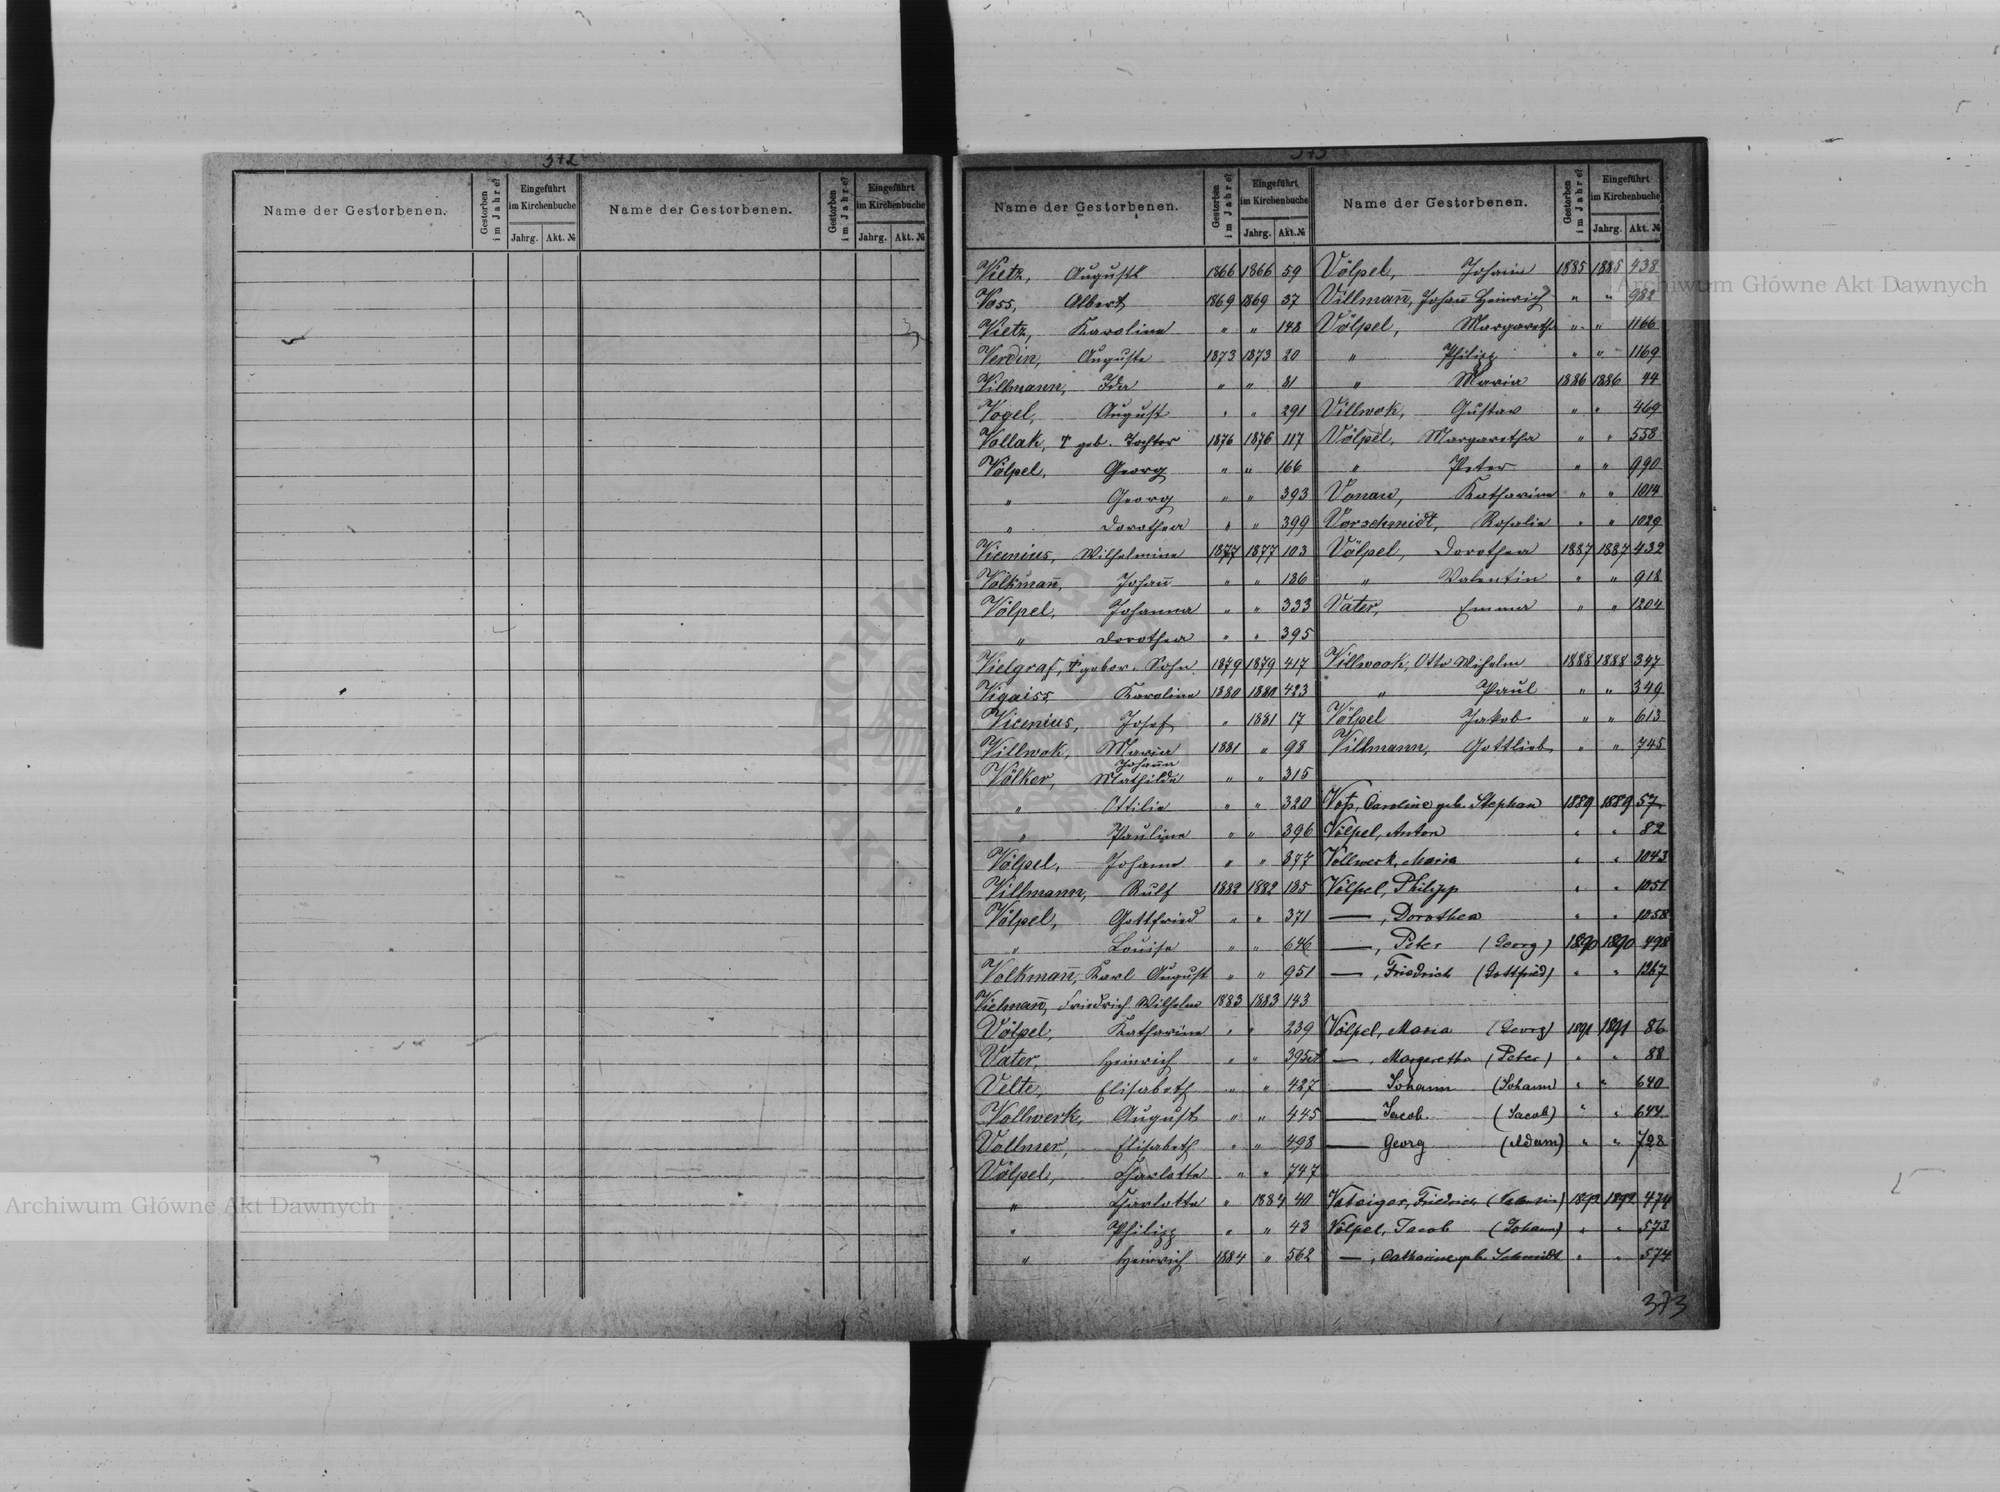 372
Name der Gestorbenen.
Gestorben im Jahre?
Eingeführt im Kirchenbuche
Jahrg. Akt. №
Name der Gestorbenen.
Gestorben im Jahre?
Eingeführt im Kirchenbuche
Jahrg. Akt. №
373
Name der Gestorbenen.
Gestorben im Jahre?
Eingeführt im Kirchenbuche
Jahrg. Akt. №
Vietz, August 1866 1866 59
Voss, Albert 1869 1869 37
Vietz, Karoline " " 148
Verdin, Auguste 1873 1873 20
Villmann, Ida " " 81
Vogel, August " " 291
Vollak, T geb. Tochter 1876 1876 117
Völpel, Georg " " 166
" Georg " " 393
" Dorothea " " 399
Vicenius, Wilhelmine 1877 1877 103
Volkmañ, Johañ " " 186
Völpel, Johanna " " 333
" Dorothea " " 395
Vielgraf, T gebor. Sohn 1879 1879 417
Vigaiss, Karoline 1880 1880 423
Vicenius, Josef " 1881 17
Villwok, Maria 1881 " 98
Völker, Johanna Mathilde " " 315
" Ottilie " " 320
" Pauline " " 396
Völpel, Johann " " 377
Villmann, Rulf 1882 1882 185
Völpel, Gottfried " " 371
" Louise " " 646
Volkmañ, Karl August " " 951
Vielmañ, Friedrich Wilhelm 1883 1883 143
Völpel, Katharine " " 239
Vater, Heinrich " " 395
Velte, Elisabeth " " 427
Vollwerk, August " " 445
Vollmer, Elisabeth " " 498
Völpel, Charlotte " " 747
" Charlotte " 1884 40
" Philipp " " 43
" Heinrich 1884 " 562
Name der Gestorbenen.
Gestorben im Jahre?
Eingeführt im Kirchenbuche
Jahrg. Akt. №
Völpel, Johann 1885 1885 438
Villmañ, Johañ Heinrich " " 982
Völpel, Margareth " " 1166
" Philipp " " 1169
" Maria 1886 1886 44
Villwok, Gustav " " 469
Völpel, Margaretha " " 558
" Peter " " 990
Vonau, Katharine " " 1014
Vorschmidt, Rosalie " " 1029
Völpel, Dorothea 1887 1887 432
" Valentin " " 918
Vater, Emma " " 1204
Villwook, Otto Wilhelm 1888 1888 347
" Paul " " 349
Völpel Jakob " " 613
Villmann, Gottlieb " " 745
Voß, Caroline geb. Stephan 1889 1889 57
Völpel, Anton " " 82
Vollwerk, Maria " " 1043
Völpel, Philipp " " 1051
—, Dorothea " " 1058
—, Peter (Georg) 1890 1890 498
—, Friedrich (Gottfried) " " 1267
Völpel, Maria (Georg) 1891 1891 86
—, Margaretha (Peter) " " 88
— Johann (Johann) " " 640
— Jacob (Jacob) " " 644
— Georg (Adam) " " 728
Friedrich 1892 1892 474
Völpel, Jacob (Johann) " " 573
—, Catharine geb. Schmidt " " 574
373
Archiwum Główne Akt Dawnych
Archiwum Główne Akt Dawnych